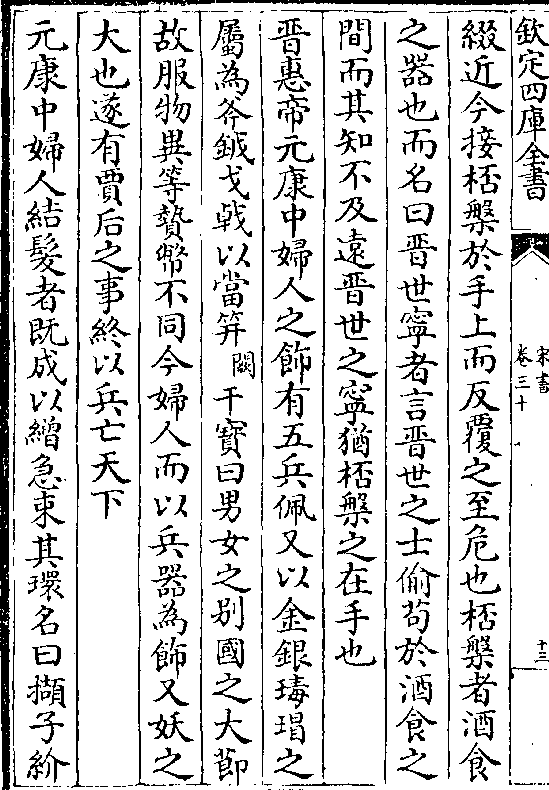 欽定四庫全書
宋書
卷三十
十三
綴近今接桮槃於手上而反覆之至危也桮槃者酒食
之器也而名曰晉世寧者言晉世之士偷苟於酒食之
間而其知不及遠晉世之寧猶桮槃之在手也
晉惠帝元康中婦人之飾有五兵佩又以金銀瑇瑁之
屬為斧鉞戈戟以當筓闕干寶曰男女之别國之大節
故服物異等贄幣不同今婦人而以兵器為飾又妖之
大也遂有賈后之事終以兵亡天下
元康中婦人結髮者既成以繒急束其環名曰擷子紒